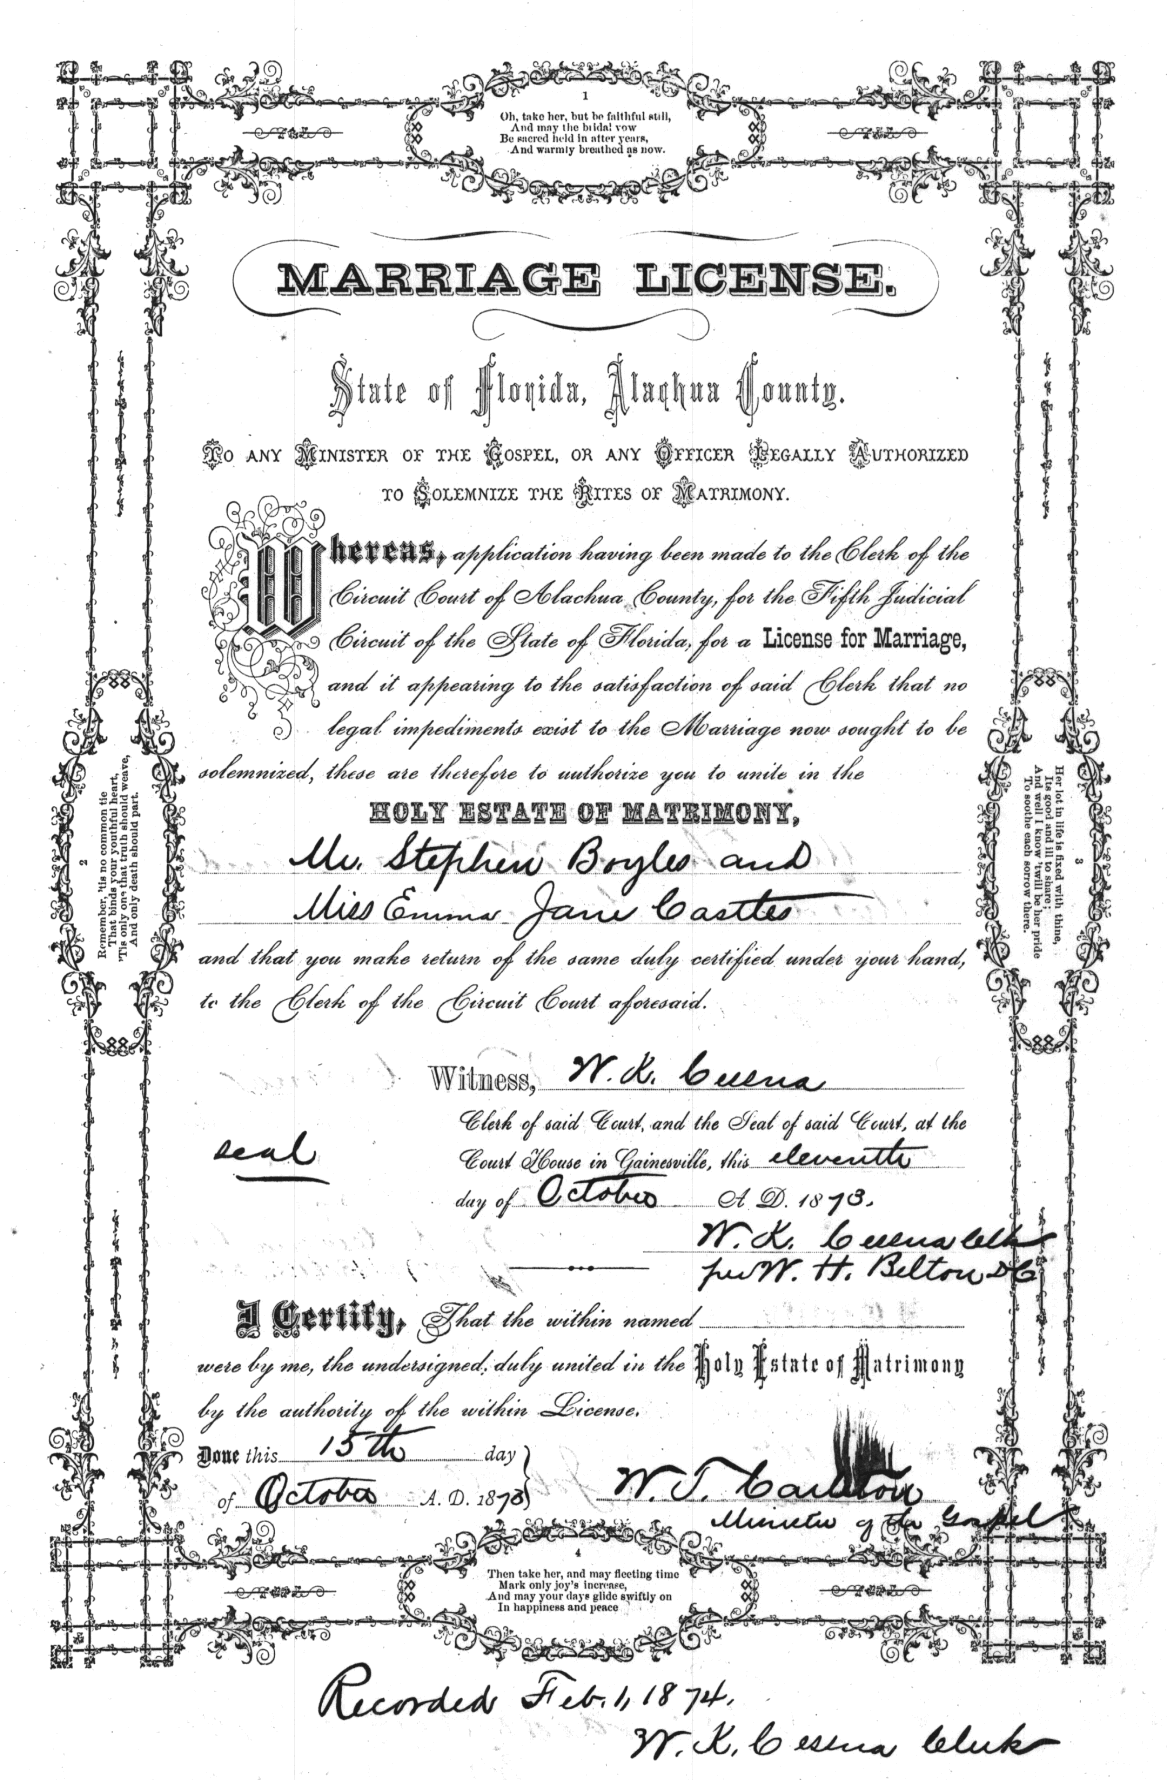 1
Oh, take her, but be faithful still,
And may the bridal vow
Be sacred held in after years,
And warmly breathed as now.
MARRIAGE LICENSE.
State of Florida, Alachua County.
To any Minister of the Gospel, or any Officer Legally Authorized
to Solemnize the Rites of Matrimony.
Whereas, application having been made to the Clerk of the
Circuit Court of Alachua County, for the Fifth Judicial
Circuit of the State of Florida, for a License for Marriage,
and it appearing to the satisfaction of said Clerk that no
legal impediments exist to the Marriage now sought to be
solemnized, these are therefore to authorize you to unite in the
HOLY ESTATE OF MATRIMONY,
Mr. Stephen Boyles and
Miss Emma Jane Castles
and that you make return of the same duly certified under your hand,
to the Clerk of the Circuit Court aforesaid.
2
Remember, 'tis no common tie
That binds your youthful heart,
'Tis only one that truth should weave,
And only death should part.
3
Her lot in life is fixed with thine,
Its good and ill to share;
And well I know 'twill be her pride
To soothe each sorrow there.
Witness, W. K. Cessna
Clerk of said Court, and the Seal of said Court, at the
seal
Court House in Gainesville, this eleventh
day of October A. D. 1873.
W. K. Cessna Clk
per W. H. Belton DC
I Certify, That the within named
were by me, the undersigned, duly united in the Holy Estate of Matrimony
by the authority of the within License.
Done this 15th day
of October A. D. 1873
W. J. Carlton
Minister of the Gospel
4
Then take her, and may fleeting time
Mark only joy's increase,
And may your days glide swiftly on
In happiness and peace
Recorded Feb. 1, 1874.
W. K. Cessna Clerk